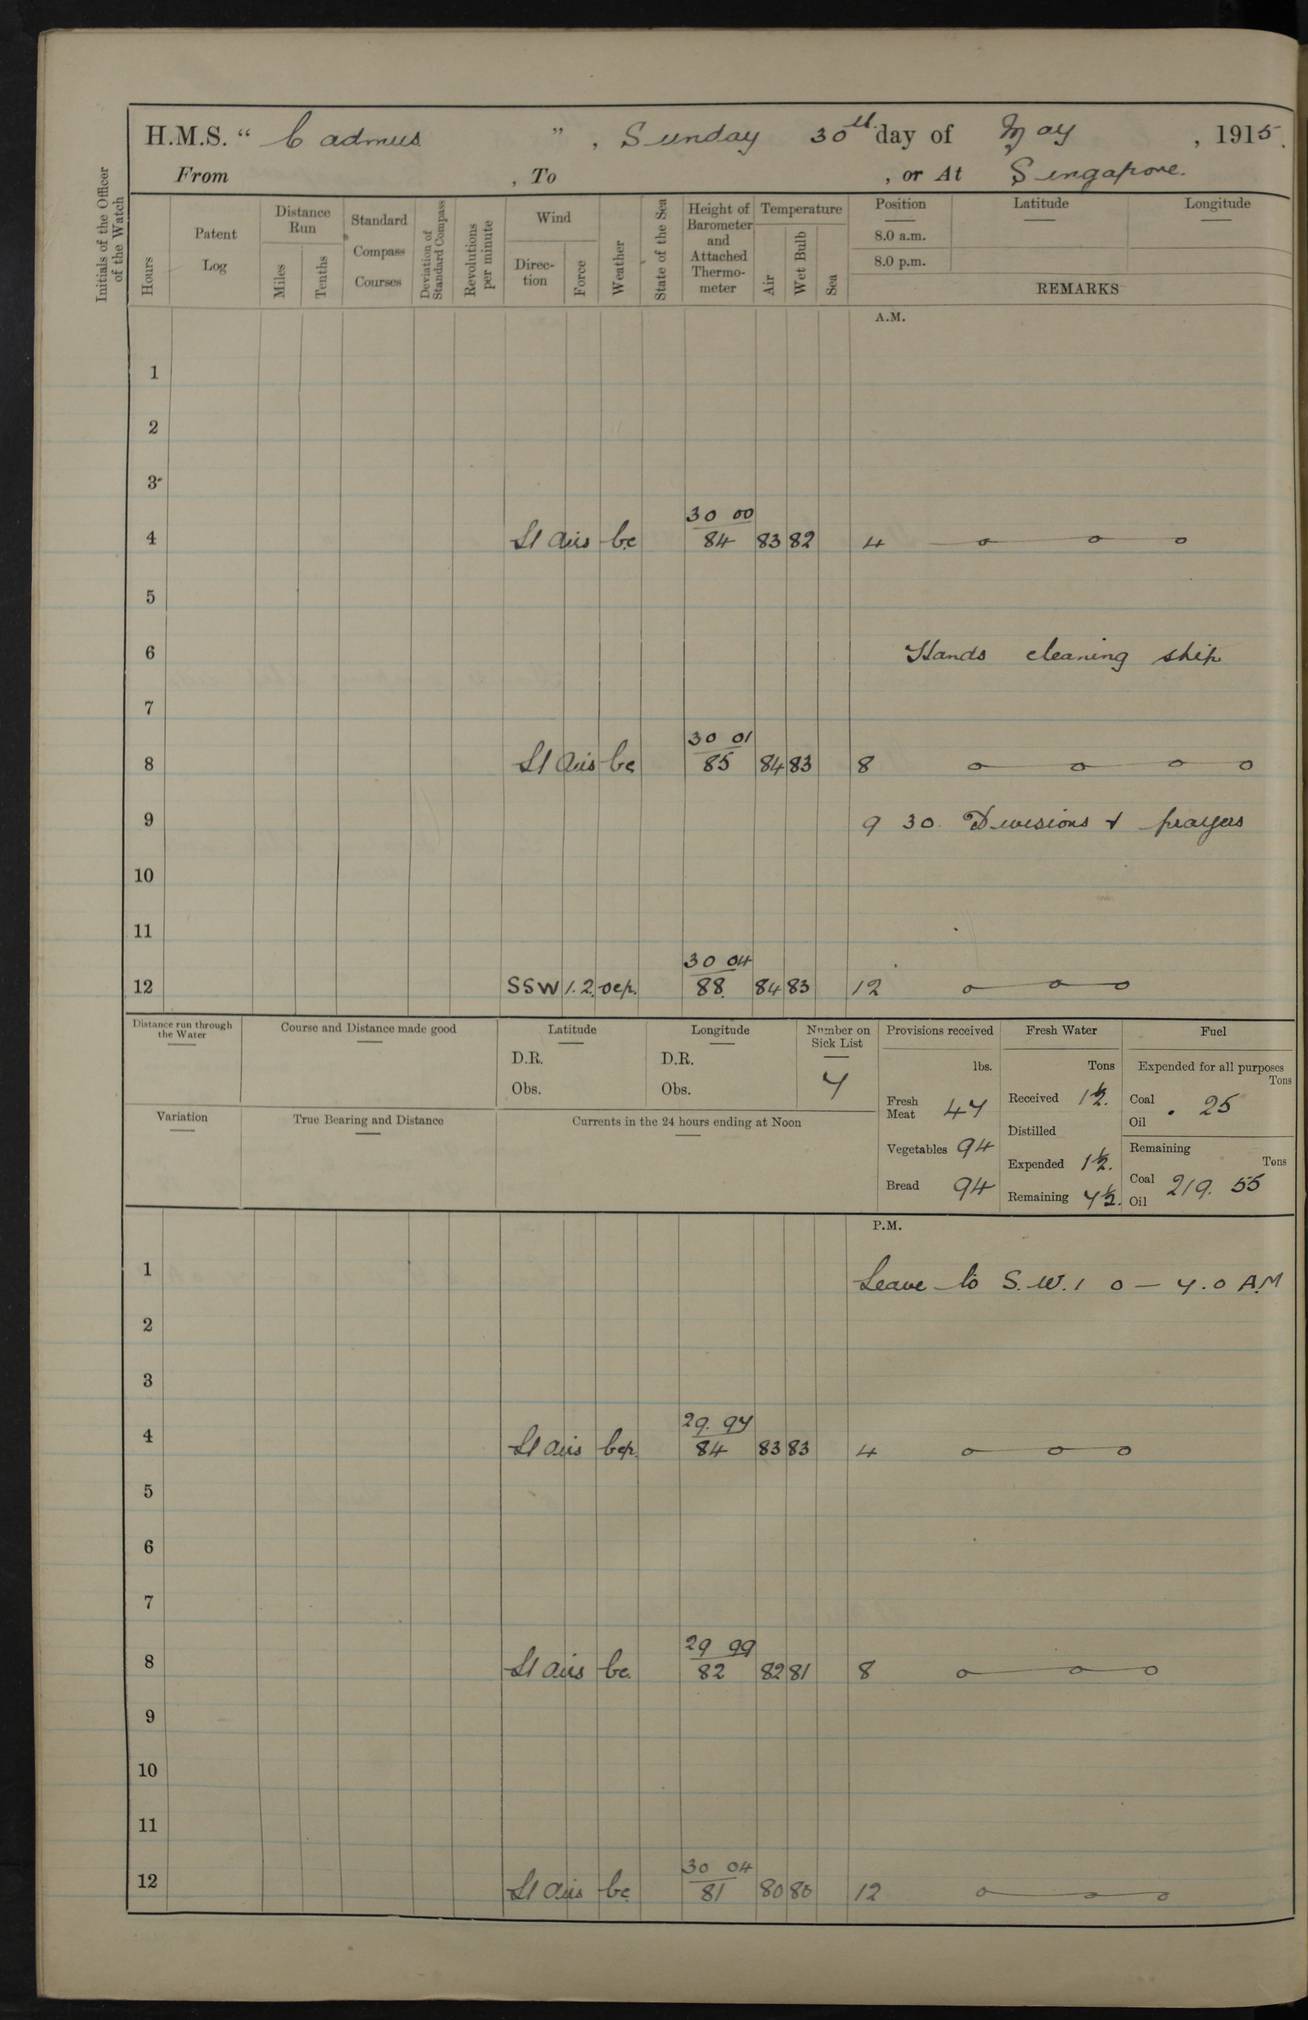 H.M.S. “ Cadmus ” , Sunday 30th day of May , 1915.
From , To , or At Singapore.
Initials of the Officer of the Watch
Hours
Patent Log
Distance Run
Miles
Tenths
Standard Compass Courses
Deviation of Standard Compass
Revolutions per minute
Wind
Direction
Force
Weather
State of the Sea
Height of Barometer and Attached Thermometer
Temperature
Air
Wet Bulb
Sea
Position
8.0 a.m.
8.0 p.m.
Latitude
Longitude
REMARKS
A.M.
1
2
3
30 00
4 Lt airs bc 84 83 82 4
5
6 Hands cleaning ship
7
30 01
8 Lt airs bc 85 84 83 8
9 9 30 Divisions & prayers
10
11
30 04
12 SSW 1.2. ocp. 88 84 83 12
Distance run through the Water
Course and Distance made good
Latitude
D.R.
Obs.
Longitude
D.R.
Obs.
Number on Sick List
7
Provisions received
lbs.
Fresh Meat 47
Vegetables 94
Bread 94
Fresh Water
Tons
Received 1½.
Distilled
Expended 1½.
Remaining 7½.
Fuel
Expended for all purposes
Tons
Coal
Oil . 25
Remaining
Tons
Coal
Oil 219. 55
Variation
True Bearing and Distance
Currents in the 24 hours ending at Noon
P.M.
1 Leave to S.W. 1 0 — 7.0 AM
2
3
29. 97
4 Lt airs bcp. 84 83 83 4
5
6
7
29 99
8 Lt airs bc. 82 82 81 8
9
10
11
30 04
12 Lt airs bc 81 80 80 12